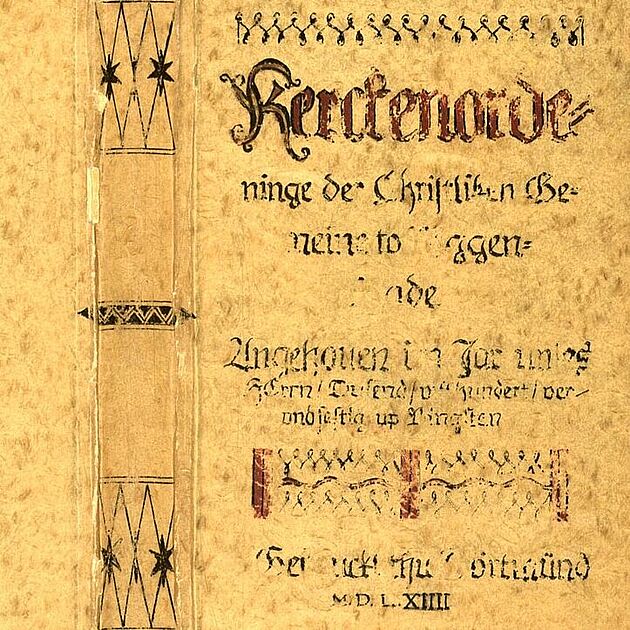 Kerckenorde=
ninge der Christliken Ge=
meine to Niggen=
rade
Angehouen im Jar unses
HErrn / Dusend / viffhundert / ver=
undsestig up Pingsten
Gedruckt thu Dortmünd
M.D.L.XIIII